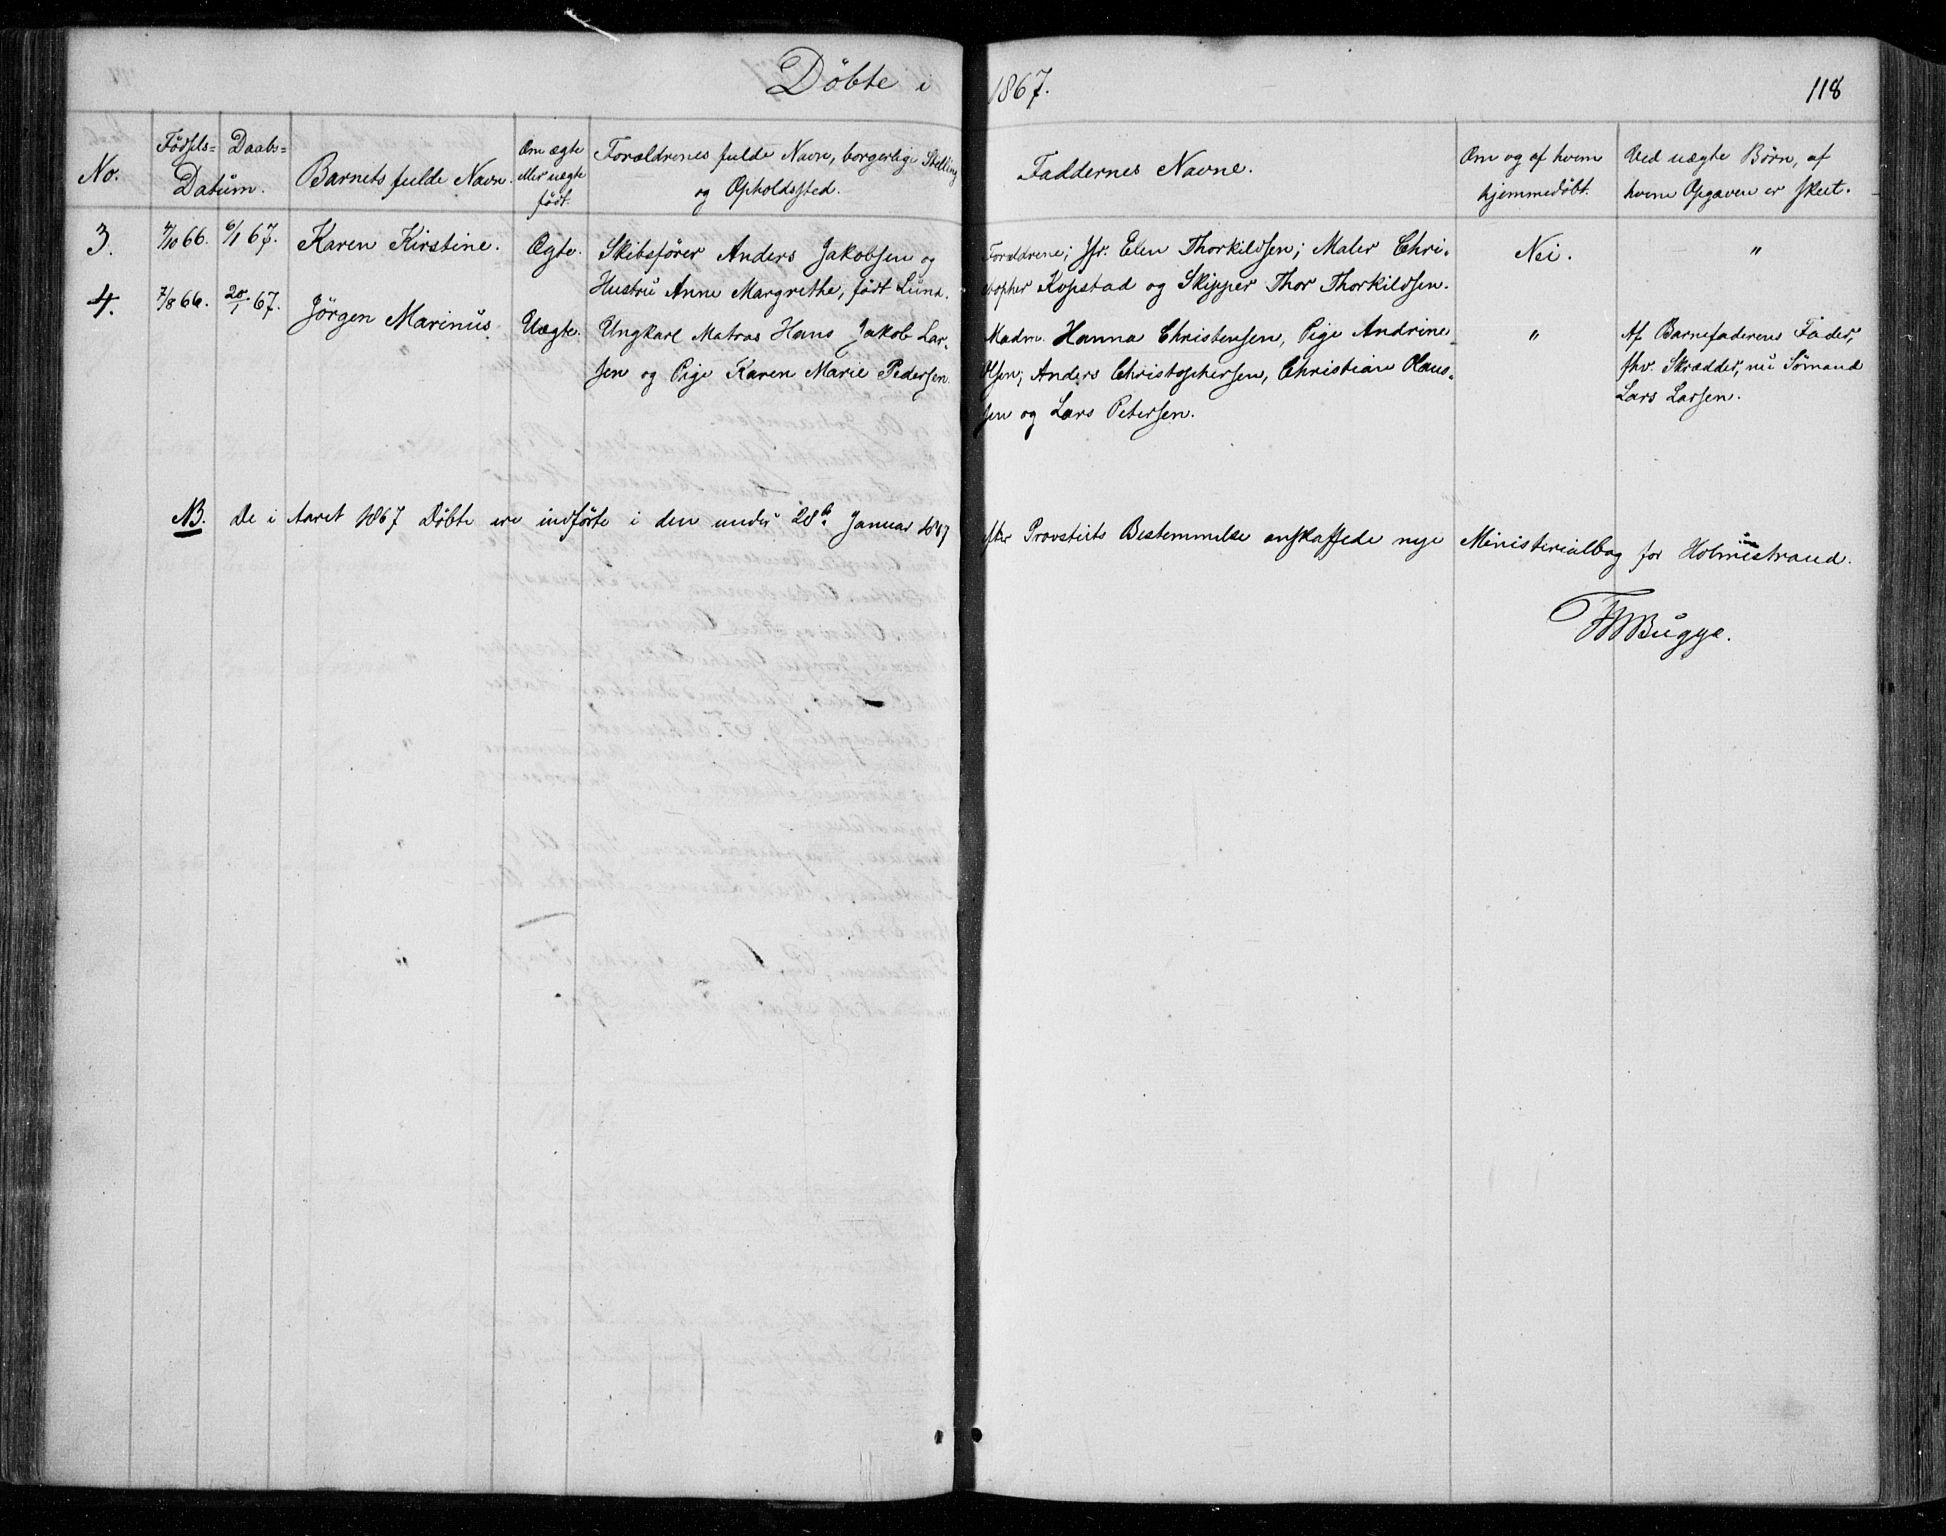 Döbte i 1867. 118
No.
Födsels- Daabs-
Datum.
Barnets fulde Navn.
Om ægte
eller uægte
født.
Forældrenes fulde Navn, borgerlige Stilling
og Opholdssted.
Faddernes Navne.
Om og af hvem
hjemmedøbt.
Ved uægte Børn, af
hvem Opgaven er skeet.
3. 66. 6/1 67. Karen Kirstine. Ægte. Skibsfører Anders Jakobsen og
Hustru Anne Margrethe, født Lund.
Forældrene; Jfr. Elen Thorkildsen; Maler Chri-
stopher Kopstad og Skipper Thor Thorkildsen.
Nei. "
4. 7/8 66. 20/1 67. Jörgen Marinus. Uægte. Ungkarl Matros Hans Jakob Lar-
sen og Pige Karen Marie Pedersen.
Madm. Hanna Christensen, Pige Andrine
Olsen, Anders Christophersen, Christian Claus-
sen og Lars Petersen.
"
Af Barnefaderens Fader,
fhv. Skrædder, nu Sömand
Lars Larsen.
NB. De i Aaret 1867 Döbte ere indförte i den under 28de Januar 1867 efter Provstiets Bestemmelse anskaffede nye Ministerialbog for Holmestrand.
Bugge.